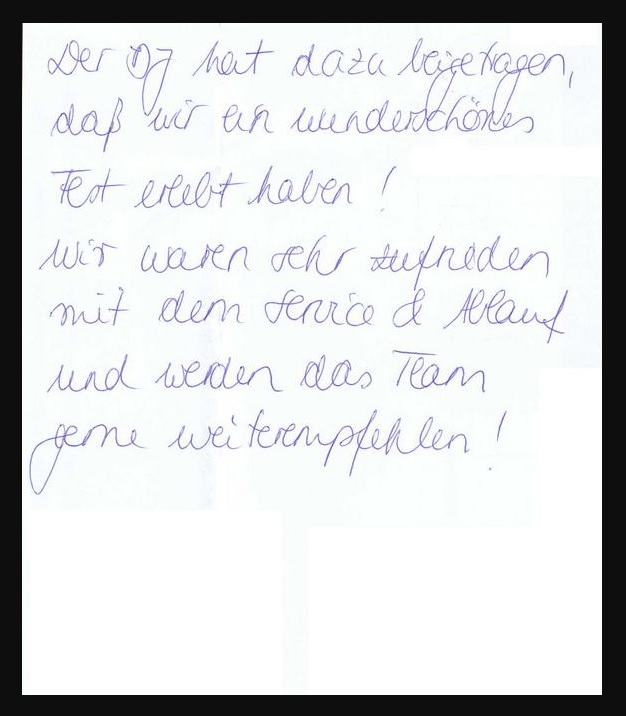 Der DJ hat dazu beigetragen,
daß wir ein wunderschönes
Fest erlebt haben !
Wir waren sehr zufrieden
mit dem Service & Ablauf
und werden das Team
gerne weiterempfehlen !